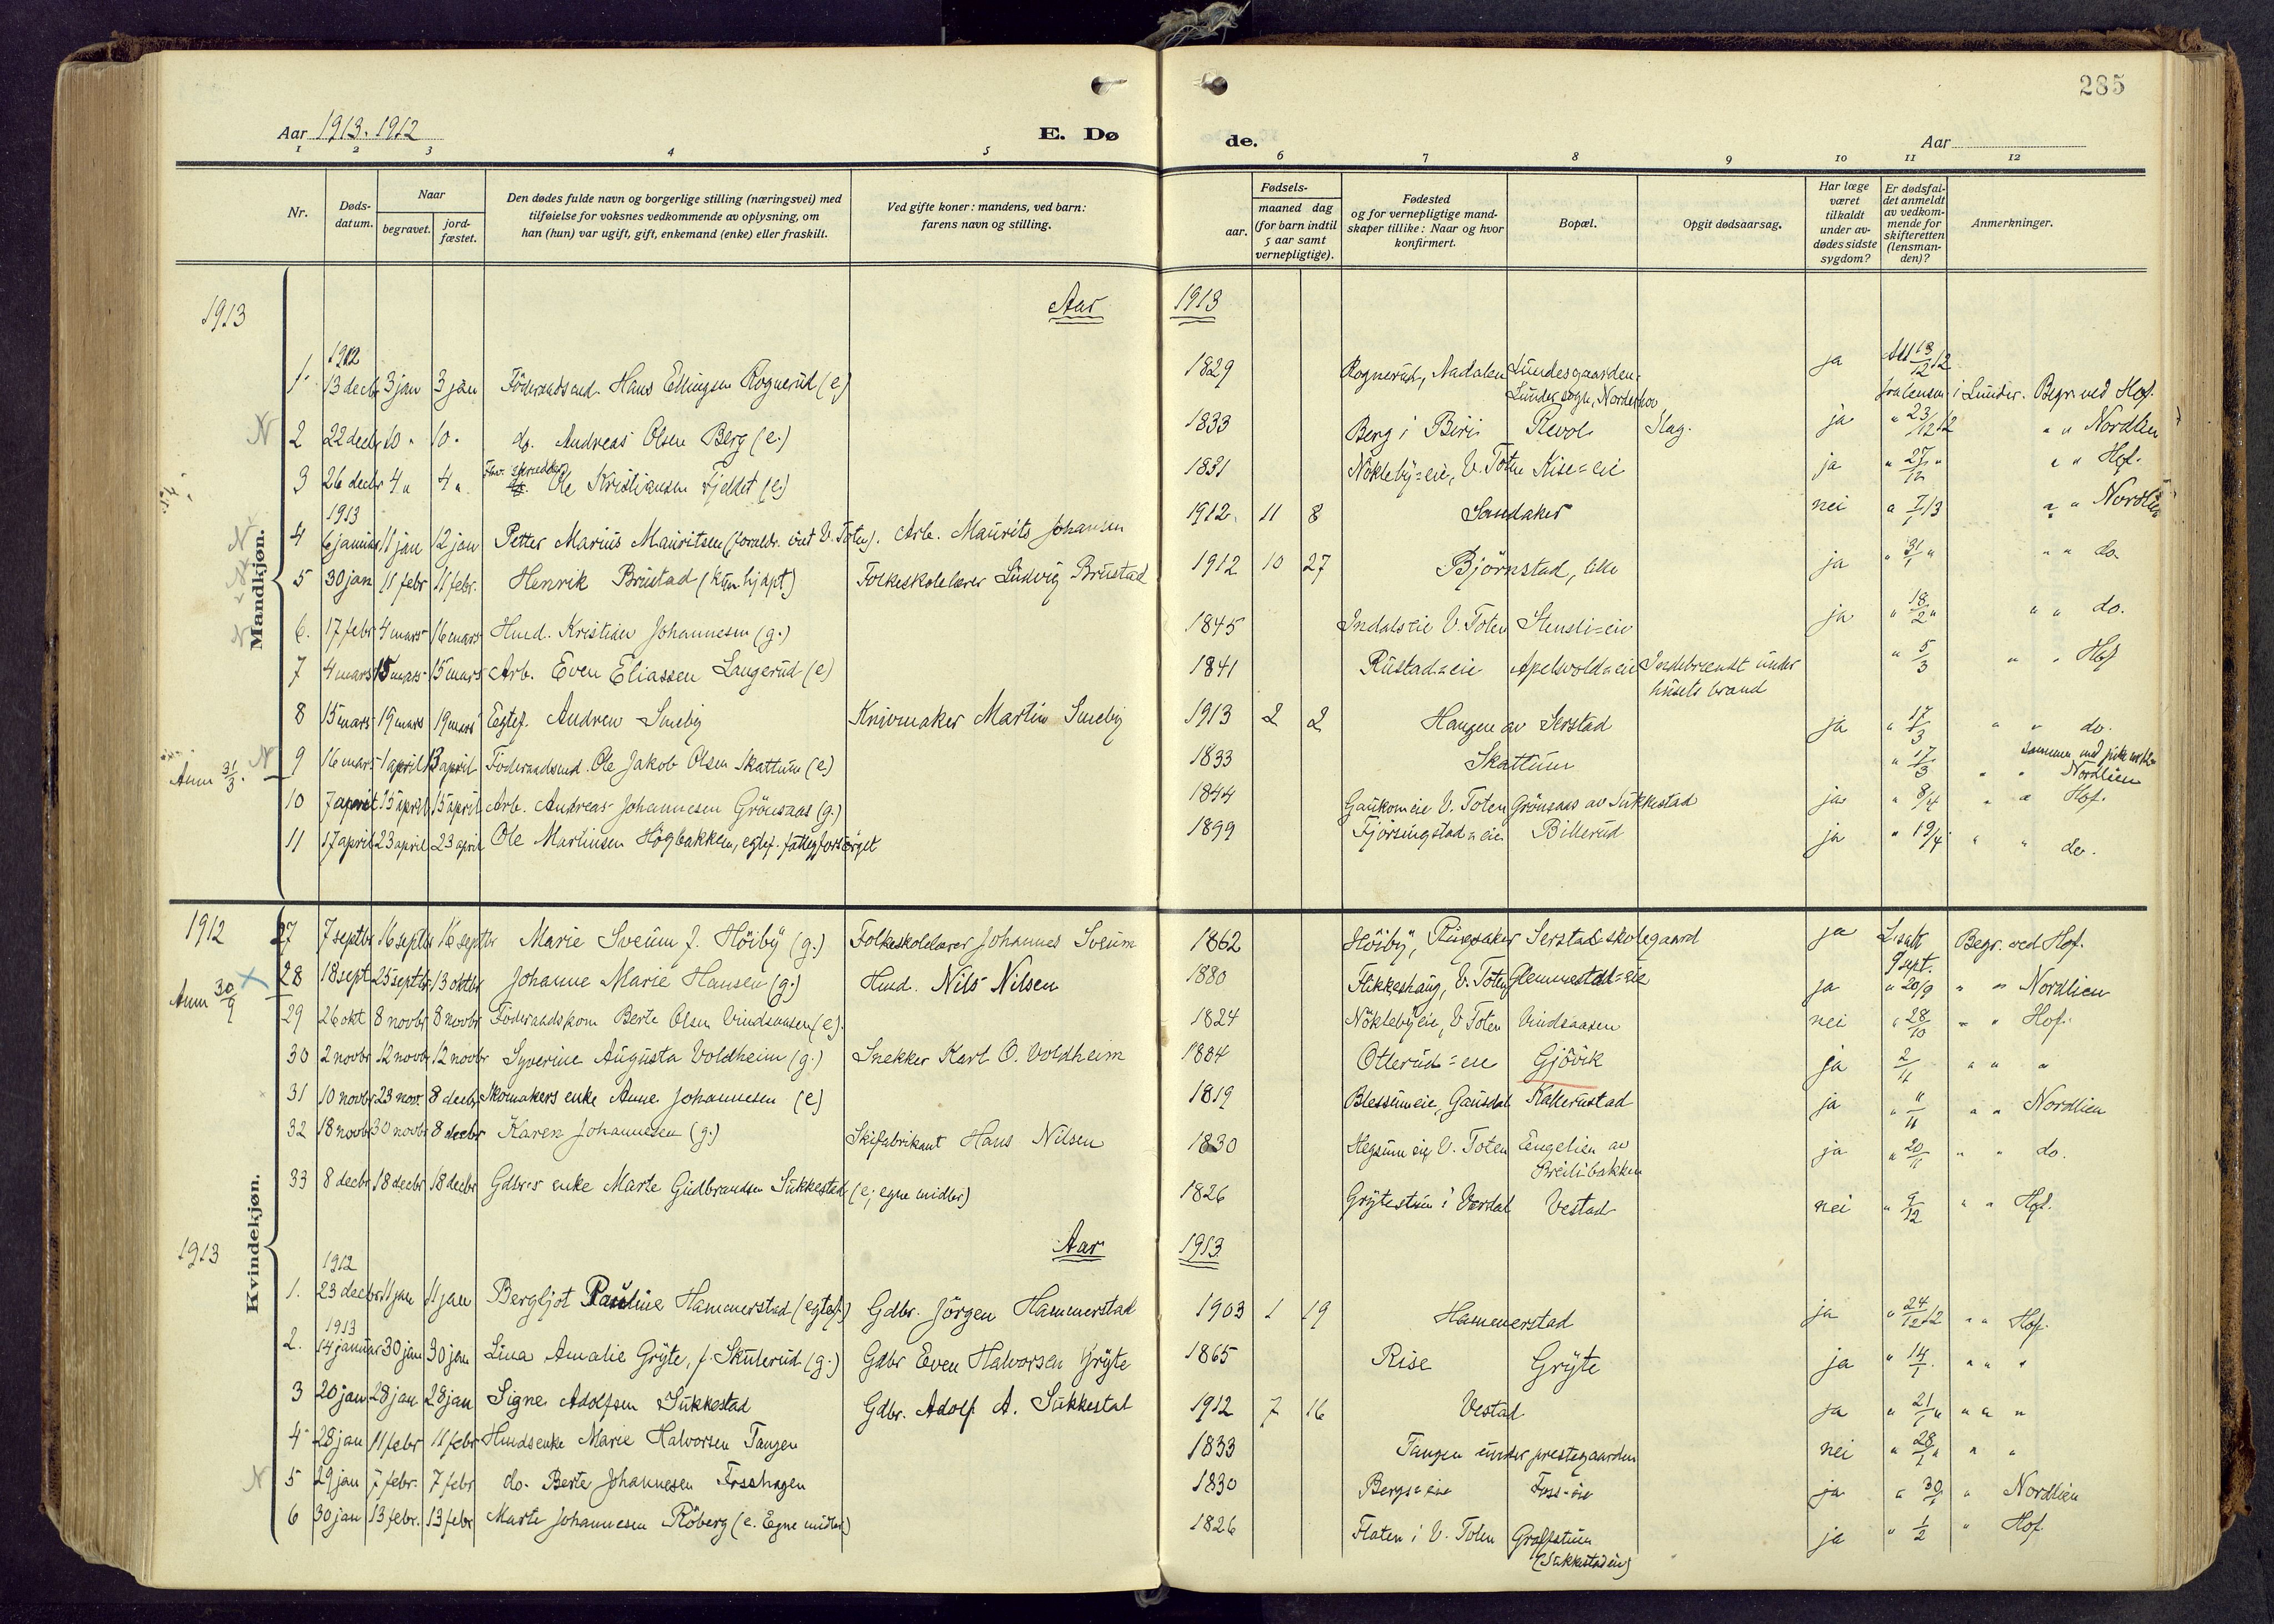 285
Aar 1913. 1912 E. Dø de. Aar
1 2 3 4 5 6 7 8 9 10 11 12
Nr.
Døds-
datum.
Naar
begravet.
jord-
fæstet.
Den dødes fulde navn og borgerlige stilling (næringsvei) med
tilføielse for voksnes vedkommende av oplysning, om
han (hun) var ugift, gift, enkemand (enke) eller fraskilt.
Ved gifte koner: mandens, ved barn:
farens navn og stilling.
Fødsels-
aar.
maaned dag
(for barn indtil
5 aar samt
vernepligtige).
Fødested
og for vernepligtige mand-
skaper tillike: Naar og hvor
konfirmert.
Bopæl.
Opgit dødsaarsag.
Har læge
været
tilkaldt
under av-
dødes sidste
sygdom?
Er dødsfal-
det anmeldt
av vedkom-
mende for
skifteretten
(lensman-
den)?
Anmerkninger.
1913 Aar 1913
Mandkjøn.
1912
1. 13 decb 3 jan 3 jan Föderaadsmd. Hans Ellingsen Rognerud (e) 1829 Rognerud, Nadalen Lundesgaarden. ja Att 13/12 12
Lunder sogn, Norderhov fra lensm. i Lunder. Begr. ved Hof.
N 2 22 decb 10 " 10 " do. Andreas Olsen Berg (e.) 1833 Berg i Biri Revol Slag. ja " 23/12 12 " " Nordlien
3 26 decbr 4 " 4 " Fhv. skrædder Ole Kristiansen Fjeldet (e) 1831 Nökleby=eie, V. Toten Kise=eie ja " 27/12 " " " Hof.
1913
N 4 6 januar 11 jan 12 jan Petter Marius Mauritsen (foraldr. int V. Toten). Arb. Maurits Johansen 1912 11 8 Sandaker nei " 7/1 13 " " Nordlien
N 5 30 jan 11 febr 11 febr. Henrik Brustad (kun hj.dpt) Folkeskolelærer Ludvig Brustad 1912 10 27 Björnstad, lille ja " 31/1 " " " do
N 6. 17 febr 4 mars 16 mars Hmd. Kristian Johannesen (g.) 1845 Indalseie V. Toten Stensli=eie ja " 18/2 " " " do.
7 4 mars 15 mars 15 mars Arb. Even Eliassen Langerud (e) 1841 Rustad=eie Apelsvold=eie Indebrændt under " 5/3 " " Hof
husets brand
8 15 mars 19 mars 19 mars Egtef. Andrew Smeby Knivmaker Martin Smeby 1913 2 2 Haugen av Serstad ja " 17/3 " " do.
Anm 31/3. N 9 16 mars 1 april 13 april Föderaadsmd. Ole Jakob Olsen Skattum (e) 1833 Skattum " 17/3 " " Nordlien
10 7 april 15 april 15 april Arb. Andreas Johannesen Grönsaas (g.) 1844 Gaukom eie V. Toten Grönsaas av Sukkestad ja " 8/4 " " Hof.
11 17 april 23 april 23 april Ole Martinsen Högbakken, egtef. fattigforsörget 1899 Fjörsingstad=eie Billerud ja " 19/4 " " do.
Kvindekjøn.
1912 27 7 septbr 16 septbr 16 septbr Marie Sveum f. Höiby (g.) Folkeskolelærer Johannes Sveum 1862 Höiby, Ringsaker Serstad skolegaard ja 9 sept. Begr. ved Hof.
Anm 30/9 X 28 18 sept 25 septbr 13 oktbr Johanne Marie Hansen (g.) Hmd. Nils Nilsen 1880 Flikkeshaug, V. Toten Glemmestad=eie ja " 20/9 " " Nordlien
29 26 okt 8 novbr 8 novbr Föderaadskone Berte Olsen Vindsaasen (e). 1824 Nökleby eie, V Toten Vindsaasen nei " 28/10 " " Hof.
30 2 novbr 12 novbr 12 novbr Syverine Augusta Voldheim (g.) Snekker Karl O. Voldheim 1884 Otterud=eie Gjövik ja 2/11 " " "
31 10 novbr 23 novr 8 decbr Skomakers enke Anne Johannesen (e) 1819 Blessum eie, Gausdal Kallerustad ja " 11/11 " " Nordlien
32 18 novb 30 novbr 8 decbr Karen Johannesen (g.) Skifabrikant Hans Nilsen 1830 Hegsum eie V. Toten Engelien av ja " 20/11 " " do.
Breilibakken
33 8 decbr 18 decbr 18 decbr Gdbrs enke Marte Gudbrandsen Sukkestad (e; egne midler) 1826 Grytestuen i Vardal Vestad nei " 9/12 " " Hof.
1913 Aar 1913
1912
1. 23 decbr 11 jan 11 jan Bergljot Pauline Hammerstad (egtef.) Gdbr. Jörgen Hammerstad 1903 1 19 Hammerstad ja " 24/12 12 " " Hof.
1913
2. 14 januar 30 jan 30 jan Lina Amalie Gryte, f. Skulerud (g.) Gdbr Even Halvorsen Gryte 1865 Rise Gryte ja " 14/1. " " "
3 20 jan 28 jan 28 jan Signe Adolfsen Sukkestad Gdbr. Adolf A. Sukkestad 1912 7 16 Vestad ja " 21/1 " " " "
4 28 jan 11 febr 11 febr Hmdsenke Marie Halvorsen Tangen 1833 Tangen under prestegaarden nei " 28/1 " " "
N 5 29 jan 7 febr. 7 febr do. Berte Johannesen Fosshagen 1830 Bergs=eie Foss=eie ja " 30/1 " Nordlien
6 30 jan 13 febr. 13 febr Marte Johannesen Röberg (e. Egne midler) 1826 Flaten i V. Toten Graffstuen ja " 1/2 " Hof.
(Sukkestadeie)